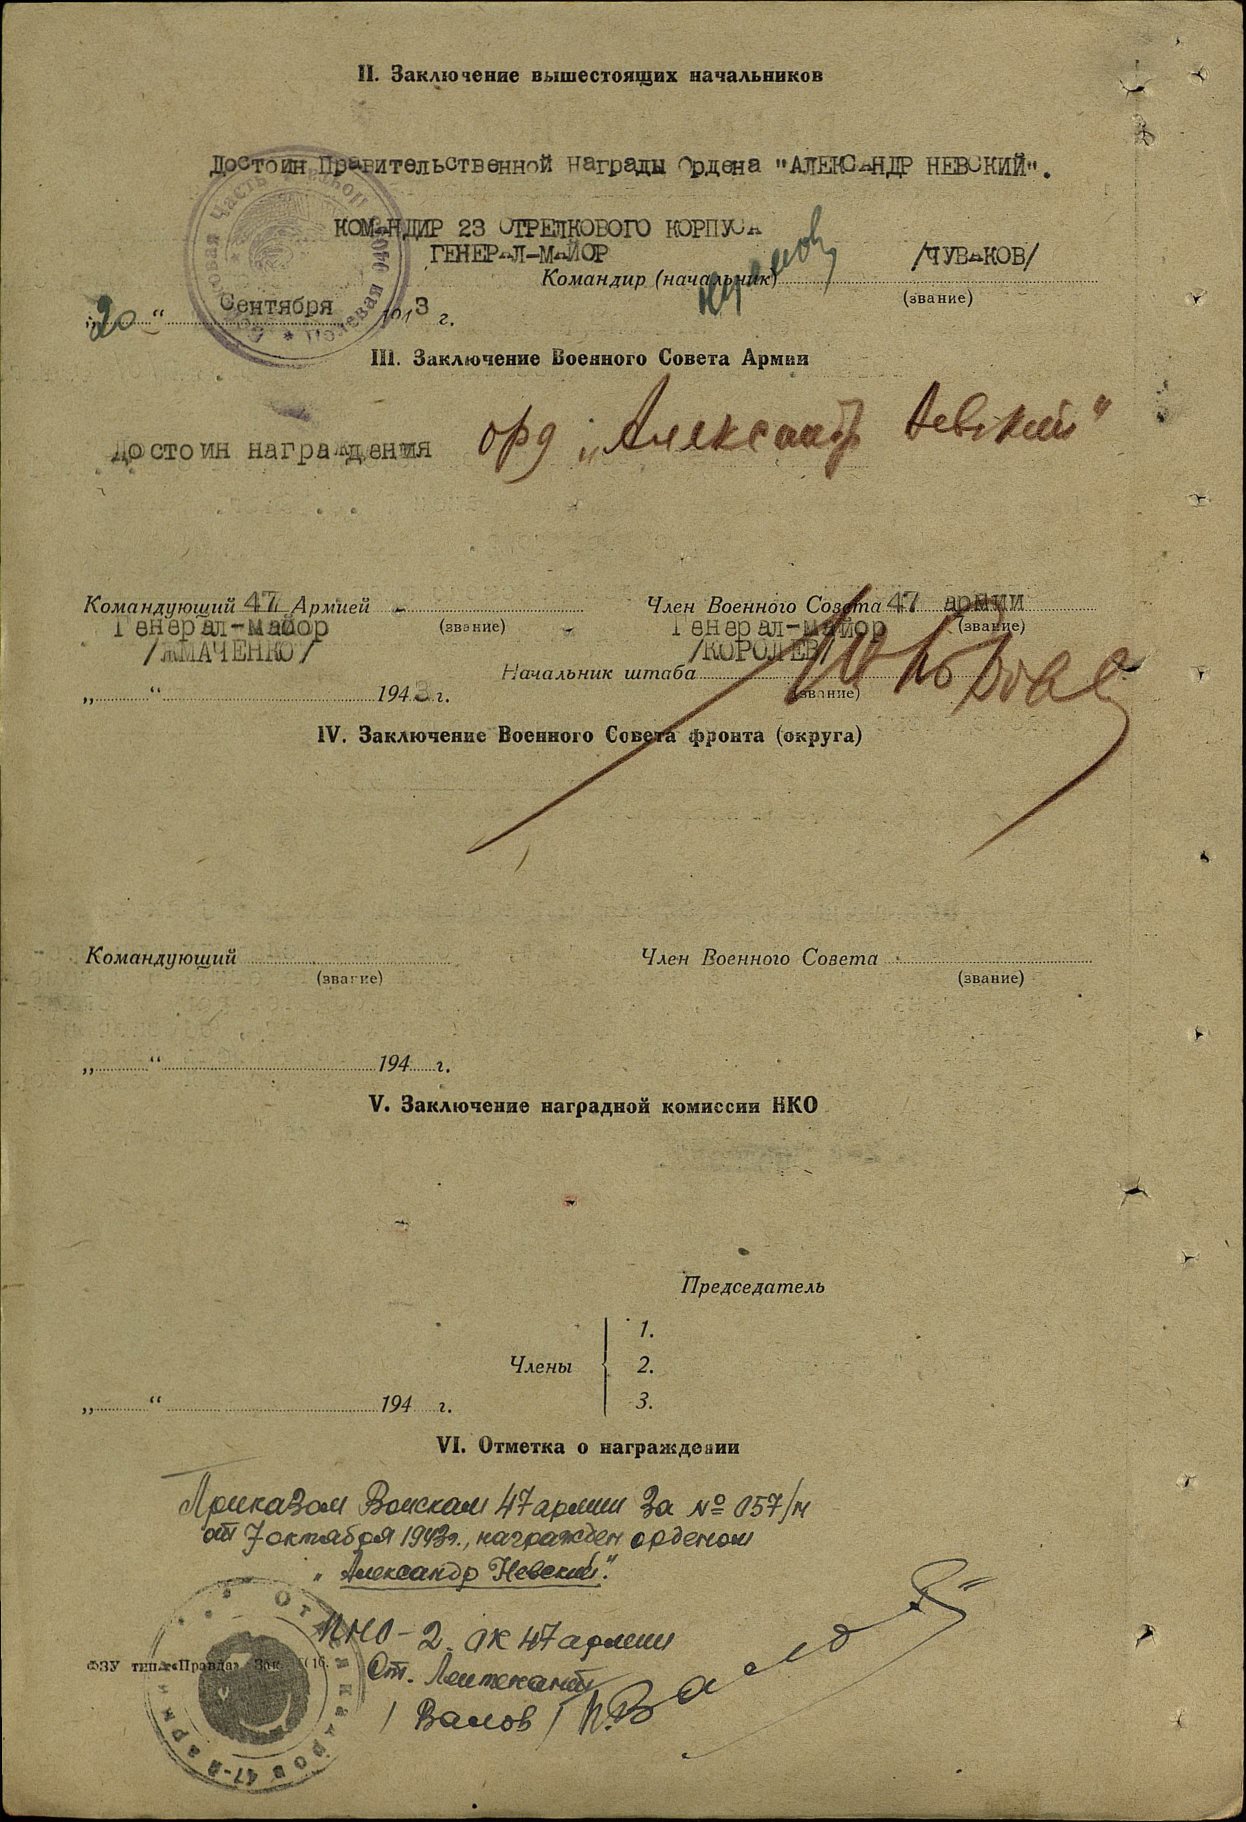 II. Заключение вышестоящих начальников
Достоин Правительственной награды Ордена "АЛЕКСАНДР НЕВСКИЙ".
КОМАНДИР 23 СТРЕЛКОВОГО КОРПУСА
ГЕНЕРАЛ-МАЙОР /ЧУВАКОВ/
Командир (начальник)
(звание)
„20“ Сентября 1943 г.
III. Заключение Военного Совета Армии
Достоин награждения орд „Александр Невский"
Командующий 47 Армией Член Военного Совета 47 армии
Генерал-майор (звание) Генерал-майор (звание)
/ЖМАЧЕНКО/ /КОРОЛЕВ/
Начальник штаба
(звание)
„ “ 1943 г.
IV. Заключение Военного Совета фронта (округа)
Командующий Член Военного Совета
(звание) (звание)
„ “ 194 г.
V. Заключение наградной комиссии НКО
Председатель
1.
Члены 2.
3.
„ “ 194 г.
VI. Отметка о награждении
Приказом Войскам 47 армии за № 057/н
от 7 октября 1943г., награжден орденом
„Александр Невский".
ПНО-2 ОК 47 армии
ФЗУ тип. «Правда» Зак.
Ст. Лейтенант
/Валов/
Отдел кадров 47-й арми